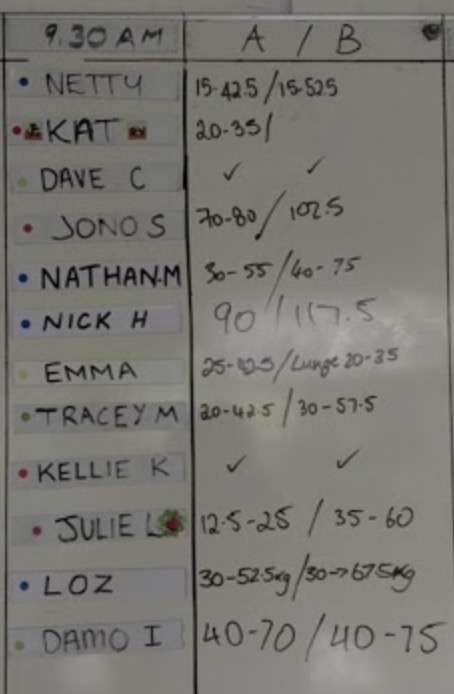 9.30 AM A / B
• NETTY 15-42.5 / 15-52.5
• KAT 20-35 /
• DAVE C ✓ ✓
• JONO S 70-80 / 102.5
• NATHAN.M 30-55 / 40-75
• NICK H 90 / 117.5
• EMMA 25-42.5 / Lunge 20-35
• TRACEY M 20-42.5 / 30-57.5
• KELLIE K ✓ ✓
• JULIE L 12.5-25 / 35-60
• LOZ 30-52.5kg / 30->67.5kg
• DAMO I 40-70 / 40-75